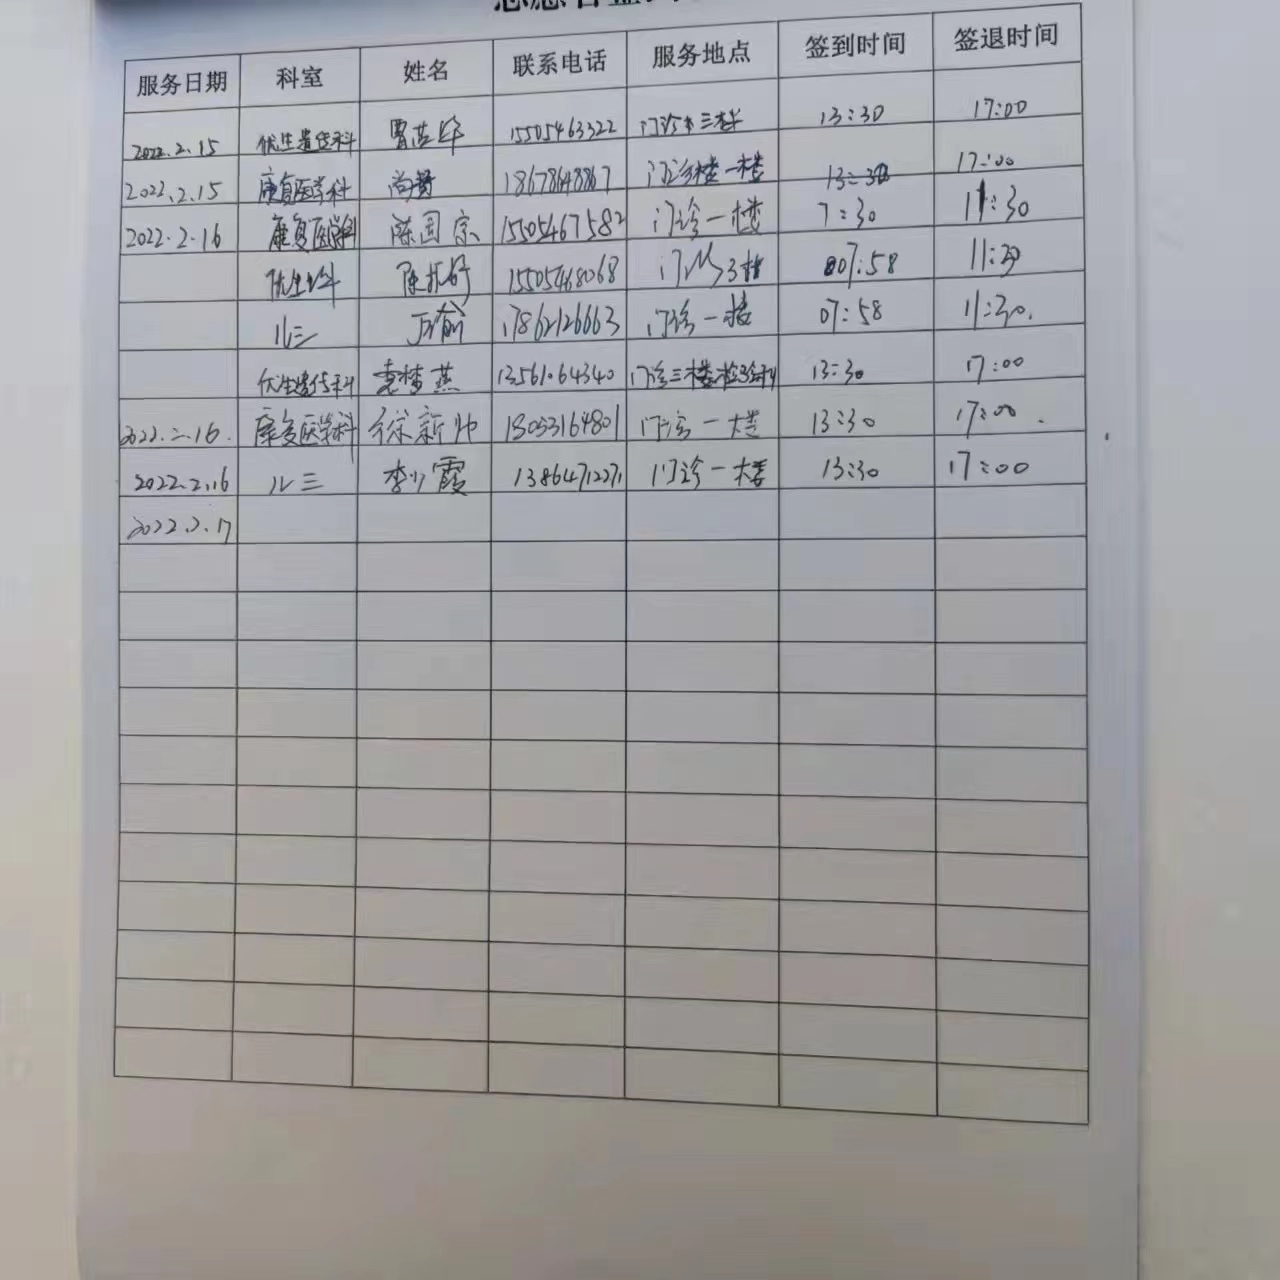 服务日期 科室 姓名 联系电话 服务地点 签到时间 签退时间
2022.2.15 优生遗传科 15505463322 13:30 17:00
2022.2.15 康复医学科 尚贵 18678648867 门诊楼一楼 13:30 17:00
2022.2.16 康复医学科 陈国宗 15505467582 门诊一楼 7:30 11:30
15505468068 07:58 11:30
儿三 17862126663 门诊一楼 07:58 11:30.
优生遗传科 袁梦燕 13561064340 门诊三楼检验科 13:30 17:00
2022.2.16. 康复医学科 徐新帅 门诊一楼 13:30 17:00.
2022.2.16 儿三 李少霞 13864712271 门诊一楼 13:30 17:00
2022.2.17